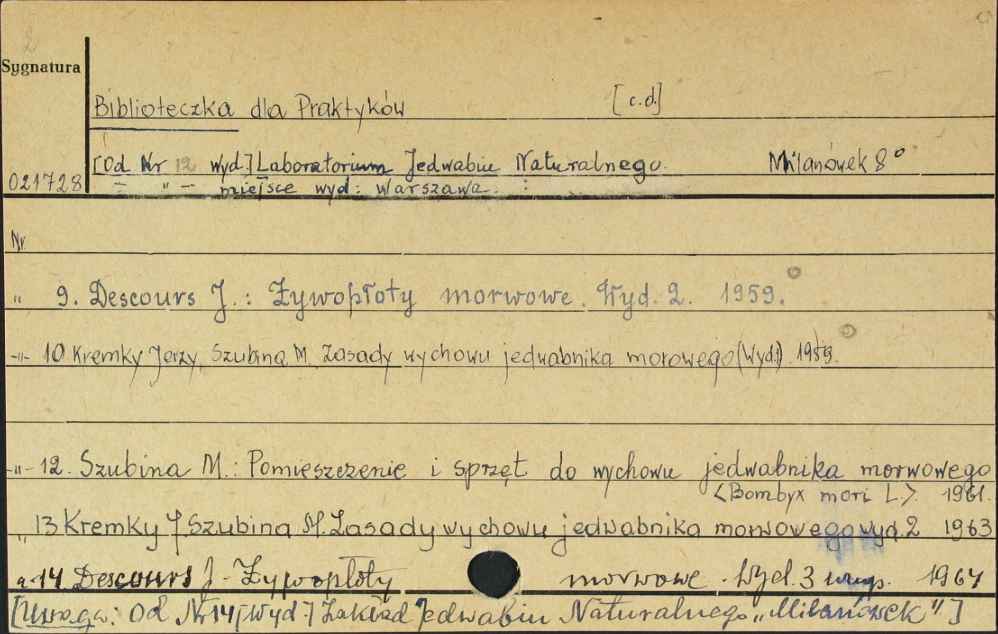 2
Sygnatura
Biblioteczka dla Praktyków [c.d.]
[Od Nr 12 wyd.] Laboratorium Jedwabiu Naturalnego. Milanówek 8°
021728
= " — miejsce wyd: Warszawa. :
Nr
" 9. Descours J.: Żywopłoty morwowe. Wyd. 2. 1959.
-"- 10 Kremky Jerzy, Szubina M. Zasady wychowu jedwabnika morowego (Wyd.1) 1959.
-"- 12. Szubina M.: Pomieszczenie i sprzęt do wychowu jedwabnika morwowego
<Bombyx mori L.> 1961.
" 13 Kremky J. Szubina M. Zasady wychowu jedwabnika morwowego wyd. 2 1963
14. Descours J - Żywopłoty morwowe. Wyd. 3 1967
[Uwaga: Od Nr 14 [Wyd.] Zakład Jedwabiu Naturalnego "Milanówek"]